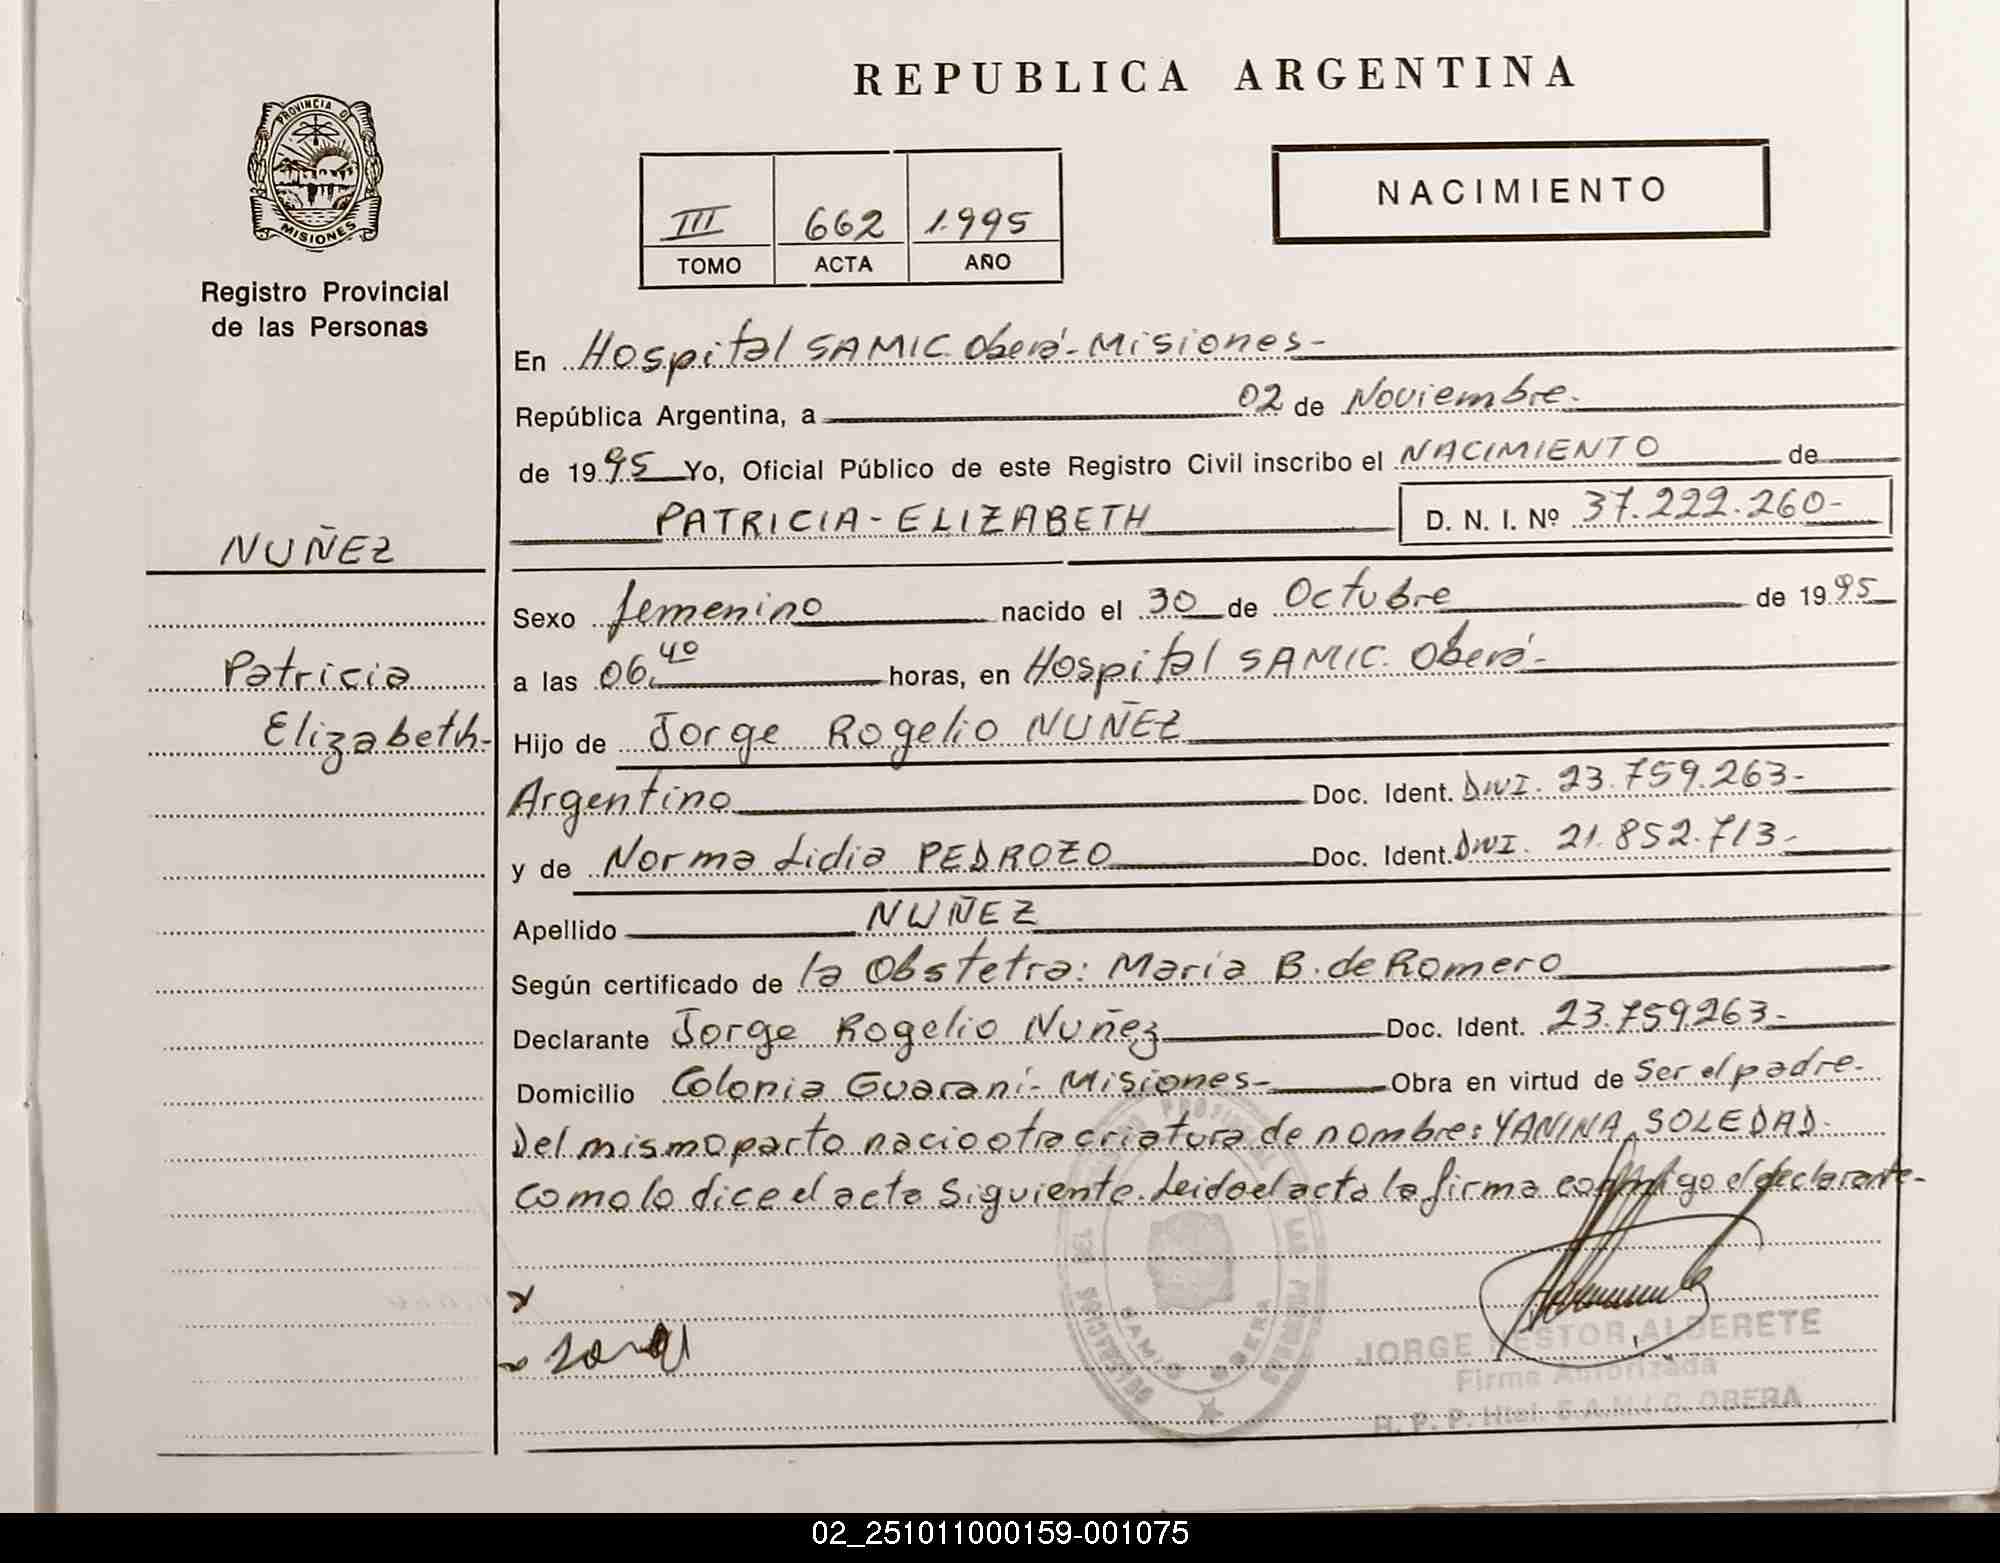 REPUBLICA ARGENTINA
PROVINCIA D
MISIONES
Registro Provincial
de las Personas
III 662 1.995
TOMO ACTA AÑO
NACIMIENTO
En Hospital SAMIC. Oberá-Misiones-
República Argentina, a 02 de Noviembre.
de 1995 Yo, Oficial Público de este Registro Civil inscribo el NACIMIENTO de
PATRICIA-ELIZABETH D. N. I. Nº 37.222.260-
NUÑEZ
Patricia
Elizabeth-
Sexo femenino nacido el 30 de Octubre de 1995
a las 06.40 horas, en Hospital SAMIC. Oberá-
Hijo de Jorge Rogelio NUÑEZ
Argentino Doc. Ident. DNI. 23.759.263-
y de Norma Lidia PEDROZO Doc. Ident. DNI. 21.852.713-
Apellido NUÑEZ
Según certificado de la Obstetra: Maria B. de Romero
Declarante Jorge Rogelio Nuñez Doc. Ident. 23.759263-
Domicilio Colonia Guaraní- Misiones- Obra en virtud de Ser el padre-
Del mismo parto nacio otra criatura de nombre: YANINA SOLEDAD-
como lo dice el acta siguiente. Leido el acta la firma conmigo el declarante-
JORGE NESTOR ALDERETE
Firma Autorizada
R. P. P. Htal. S.A.M.I.C. OBERA
02_251011000159-001075